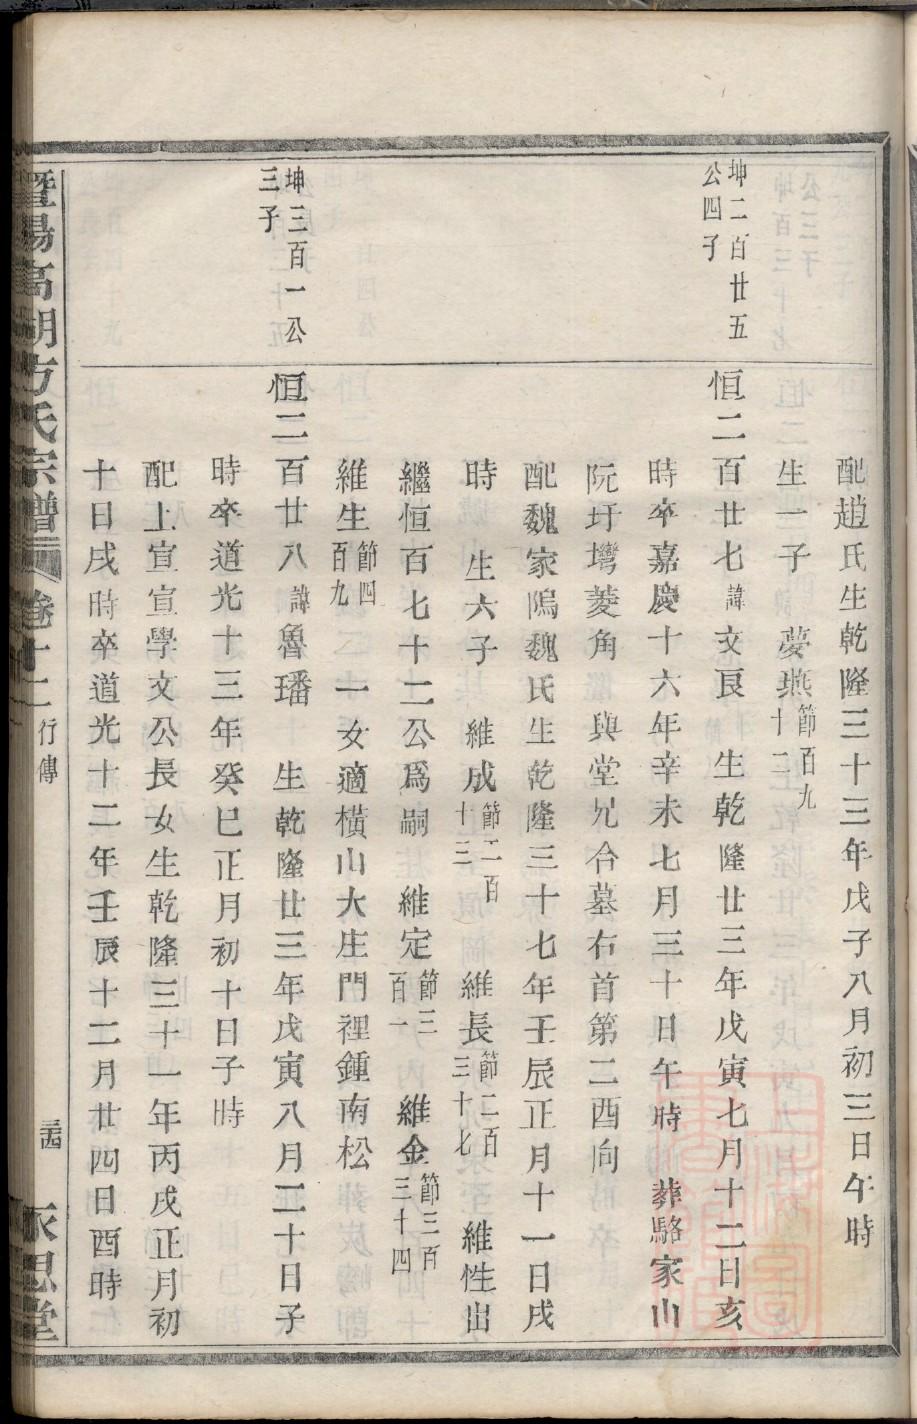 配趙氏生乾隆三十三年戊子八月初三日午時
生一子　夢燕節百九十二
坤二百廿五公四子
恒二百廿七諱文良　生乾隆廿三年戊寅七月十二日亥
時卒嘉慶十六年辛未七月三十日午時　葬駱家山
阮圩灣菱角　與堂兄合墓右首第二酉向
配魏家隖魏氏生乾隆三十七年壬辰正月十一日戌
時　生六子　維成節二百十三　維長節二百三十七　維性出
繼恒百七十二公爲嗣　維定節三百一　維金節三百三十四
維生節四百九　一女適橫山大庄門裡鍾南松
坤三百一公三子
恒二百廿八諱魯璠　生乾隆廿三年戊寅八月二十日子
時卒道光十三年癸巳正月初十日子時
配上宣宣學文公長女生乾隆三十一年丙戌正月初
十日戌時卒道光十二年壬辰十二月廿四日酉時
暨陽高湖方氏宗譜　卷十二　行傳　永思堂